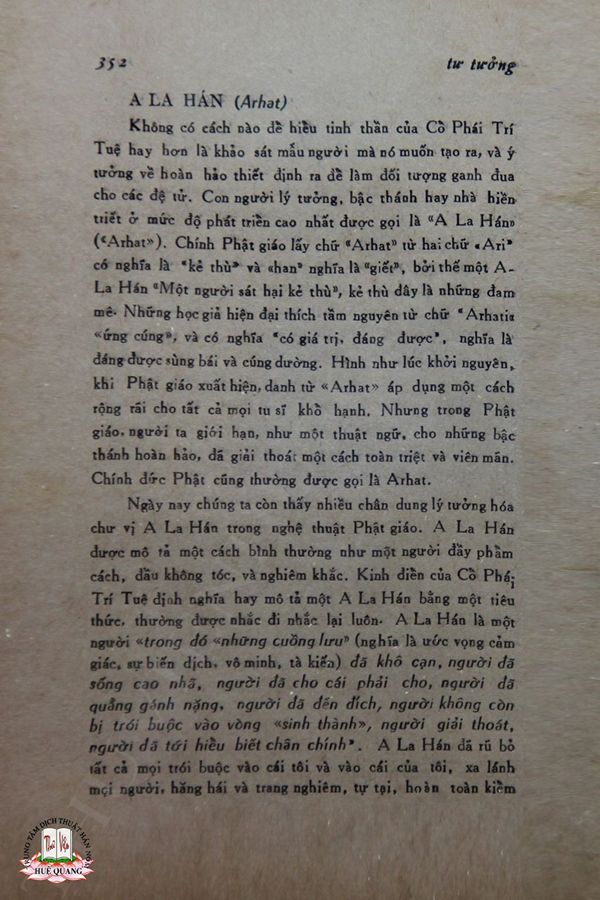 352 tư tưởng
A LA HÁN (Arhat)
Không có cách nào dề hiều tinh thần của Cồ Phái Trí
Tuệ hay hơn là khảo sát mẫu người mà nó muốn tạo ra, và ý
tưởng về hoàn hảo thiết định ra dề làm dối tượng ganh đua
cho các dệ tử. Con người lý tưởng, bậc thánh hay nhà hiền
triết ở mức độ phát triền cao nhất được gọi là “A La Hán»
(“Arhat»). Chính Phật giáo lấy chữ “Arhat” từ hai chữ «Ari”
có nghĩa là “kẻ thù” và «han” nghĩa là “giết”, bởi thế một A-
La Hán “Một người sát hại kẻ thù”, kẻ thù dây là những đam
mê. Những học giả hiện đại thích tầm nguyên từ chữ “Arhati«
«ứng cúng”, và có nghĩa “có giá trị, đáng được”, nghĩa là
dáng được sùng bái và cúng dường. Hình như lúc khởi nguyên,
khi Phật giáo xuất hiện, danh từ «Arhat» áp dụng một cách
rộng rãi cho tất cả mọi tu sĩ khồ hạnh. Nhưng trong Phật
giáo, người ta giới hạn, như một thuật ngữ, cho những bậc
thánh hoàn hảo, đã giải thoát một cách toàn triệt và viên mãn.
Chính đức Phật cũng thường được gọi là Arhat.
Ngày nay chúng ta còn thấy nhiều chân dung lý tưởng hóa
chư vị A La Hán trong nghệ thuật Phật giáo. A La Hán
được mô tả một cách bình thường như một người đầy phầm
cách, đầu không tóc, và nghiêm khắc. Kinh diền của Cồ Phái
Trí Tuệ định nghĩa hay mô tả một A La Hán bằng một tiêu
thức, thường được nhắc đi nhắc lại luôn. A La Hán là một
người «trong đó «những cuồng lưu” (nghĩa là ước vọng cảm
giác, sự biến dịch, vô minh, tà kiến) đã khô cạn, người đã
sống cao nhã, người đã cho cái phải cho, người đã
quẳng gánh nặng, người đã đến đích, người không còn
bị trói buộc vào vòng «sinh thành», người giải thoát,
người đã tới hiều biết chân chính”. A La Hán đã rũ bỏ
tất cả mọi trói buộc vào cái tôi và vào cái của tôi, xa lánh
mọi người, hăng hái và trang nghiêm, tự tại, hoàn toàn kiềm
TRUNG TÂM DỊCH THUẬT HÁN NÔM
HUỆ QUANG